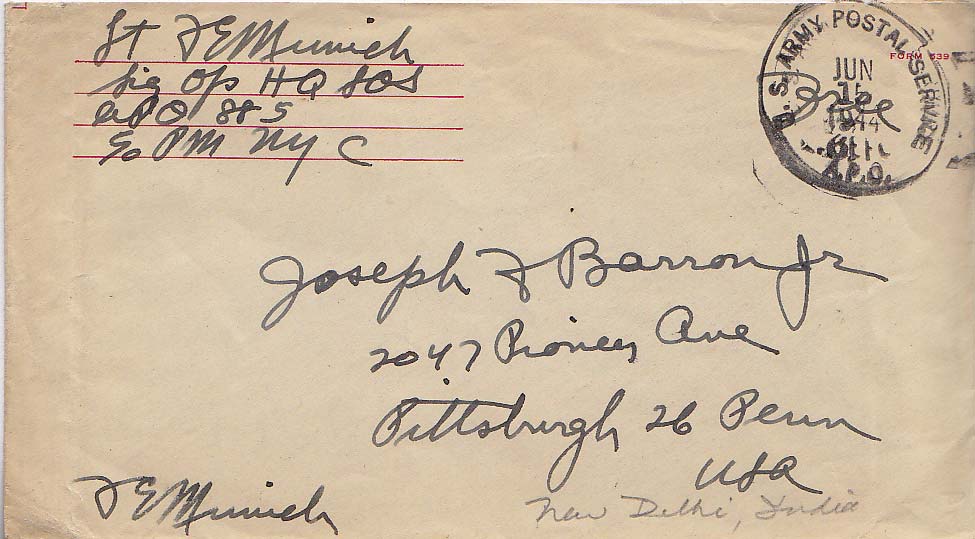 Lt F E Munich
Sig Op HQ SOS
APO 885
c/o PM NYC
U.S. ARMY POSTAL SERVICE
JUN
15
1944
A.P.O.
Free
FORM 539
Joseph F Barron Jr
2047 Pioneer Ave
Pittsburgh 26 Penn
USA
F E Munich
New Delhi, India